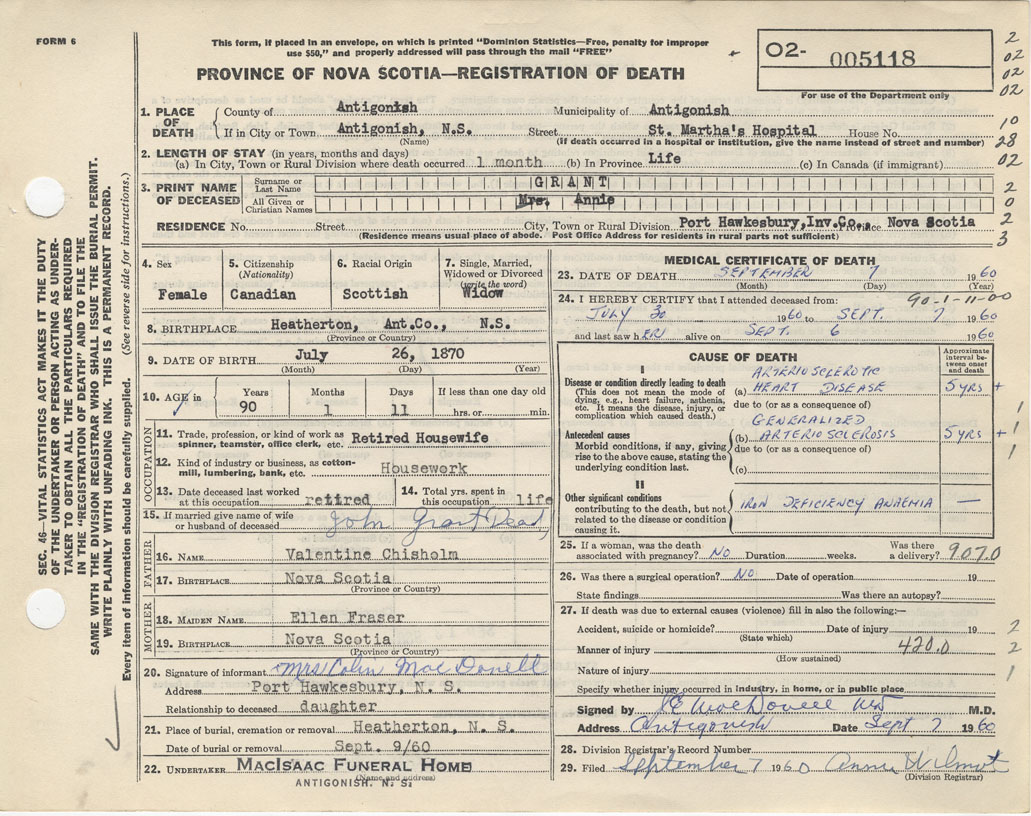 FORM 6
This form, if placed in an envelope, on which is printed "Dominion Statistics—Free, penalty for improper
use $50," and properly addressed will pass through the mail "FREE"
PROVINCE OF NOVA SCOTIA—REGISTRATION OF DEATH
O2- 005118
For use of the Department only
2
02
02
02
10
28
02
2
0
2
3
SEC. 46—VITAL STATISTICS ACT MAKES IT THE DUTY
OF THE UNDERTAKER OR PERSON ACTING AS UNDER-
TAKER TO OBTAIN ALL THE PARTICULARS REQUIRED
IN THE "REGISTRATION OF DEATH" AND TO FILE THE
SAME WITH THE DIVISION REGISTRAR WHO SHALL ISSUE THE BURIAL PERMIT.
WRITE PLAINLY WITH UNFADING INK. THIS IS A PERMANENT RECORD.
Every item of information should be carefully supplied. (See reverse side for instructions.)
1. PLACE OF DEATH County of Antigonish Municipality of Antigonish
If in City or Town Antigonish, N.S. Street St. Martha's Hospital House No.
(Name) (If death occurred in a hospital or institution, give the name instead of street and number)
2. LENGTH OF STAY (in years, months and days)
(a) In City, Town or Rural Division where death occurred 1 month (b) In Province Life (c) In Canada (if immigrant)
3. PRINT NAME OF DECEASED Surname or Last Name GRANT
All Given or Christian Names Mrs. Annie
RESIDENCE No. Street City, Town or Rural Division Port Hawkesbury, Inv.Co., Province Nova Scotia
(Residence means usual place of abode. Post Office Address for residents in rural parts not sufficient)
4. Sex Female
5. Citizenship (Nationality) Canadian
6. Racial Origin Scottish
7. Single, Married, Widowed or Divorced (write the word) Widow
8. BIRTHPLACE Heatherton, Ant.Co., N.S.
(Province or Country)
9. DATE OF BIRTH July 26, 1870
(Month) (Day) (Year)
10. AGE in Years 90 Months 1 Days 11 If less than one day old hrs. or min.
OCCUPATION
11. Trade, profession, or kind of work as spinner, teamster, office clerk, etc. Retired Housewife
12. Kind of industry or business, as cotton-mill, lumbering, bank, etc. Housework
13. Date deceased last worked at this occupation retired
14. Total yrs. spent in this occupation life
15. If married give name of wife or husband of deceased John Grant Dead
FATHER
16. NAME Valentine Chisholm
17. BIRTHPLACE Nova Scotia
(Province or Country)
MOTHER
18. MAIDEN NAME Ellen Fraser
19. BIRTHPLACE Nova Scotia
(Province or Country)
20. Signature of informant Mrs Colin MacDonell
Address Port Hawkesbury, N. S.
Relationship to deceased daughter
21. Place of burial, cremation or removal Heatherton, N. S.
Date of burial or removal Sept. 9/60
22. UNDERTAKER MACISAAC FUNERAL HOME
(Name and address)
ANTIGONISH, N. S.
MEDICAL CERTIFICATE OF DEATH
23. DATE OF DEATH SEPTEMBER 7 1960
(Month) (Day) (Year)
24. I HEREBY CERTIFY that I attended deceased from: 90-1-11-00
JULY 30 1960 to SEPT. 7 1960
and last saw hER alive on SEPT. 6 1960
CAUSE OF DEATH
Approximate interval between onset and death
I
Disease or condition directly leading to death
(This does not mean the mode of dying, e.g., heart failure, asthenia, etc. It means the disease, injury, or complication which caused death.)
(a) ARTERIOSCLEROTIC HEART DISEASE 5 YRS +
due to (or as a consequence of)
Antecedent causes
Morbid conditions, if any, giving rise to the above cause, stating the underlying condition last.
(b) GENERALIZED ARTERIOSCLEROSIS 5 YRS +
due to (or as a consequence of)
(c)
1
1
1
II
Other significant conditions
contributing to the death, but not related to the disease or condition causing it.
IRON DEFICIENCY ANAEMIA —
25. If a woman, was the death associated with pregnancy? NO Duration weeks. Was there a delivery? 9070
26. Was there a surgical operation? NO Date of operation 19
State findings Was there an autopsy?
27. If death was due to external causes (violence) fill in also the following:—
Accident, suicide or homicide? Date of injury 19
(State which)
Manner of injury 420.0
(How sustained)
Nature of injury
2
2
1
Specify whether injury occurred in industry, in home, or in public place
Signed by MacDonell M.D.
Address Antigonish Date Sept 7 1960
28. Division Registrar's Record Number
29. Filed September 7 1960 Anna Wilmot
(Division Registrar)